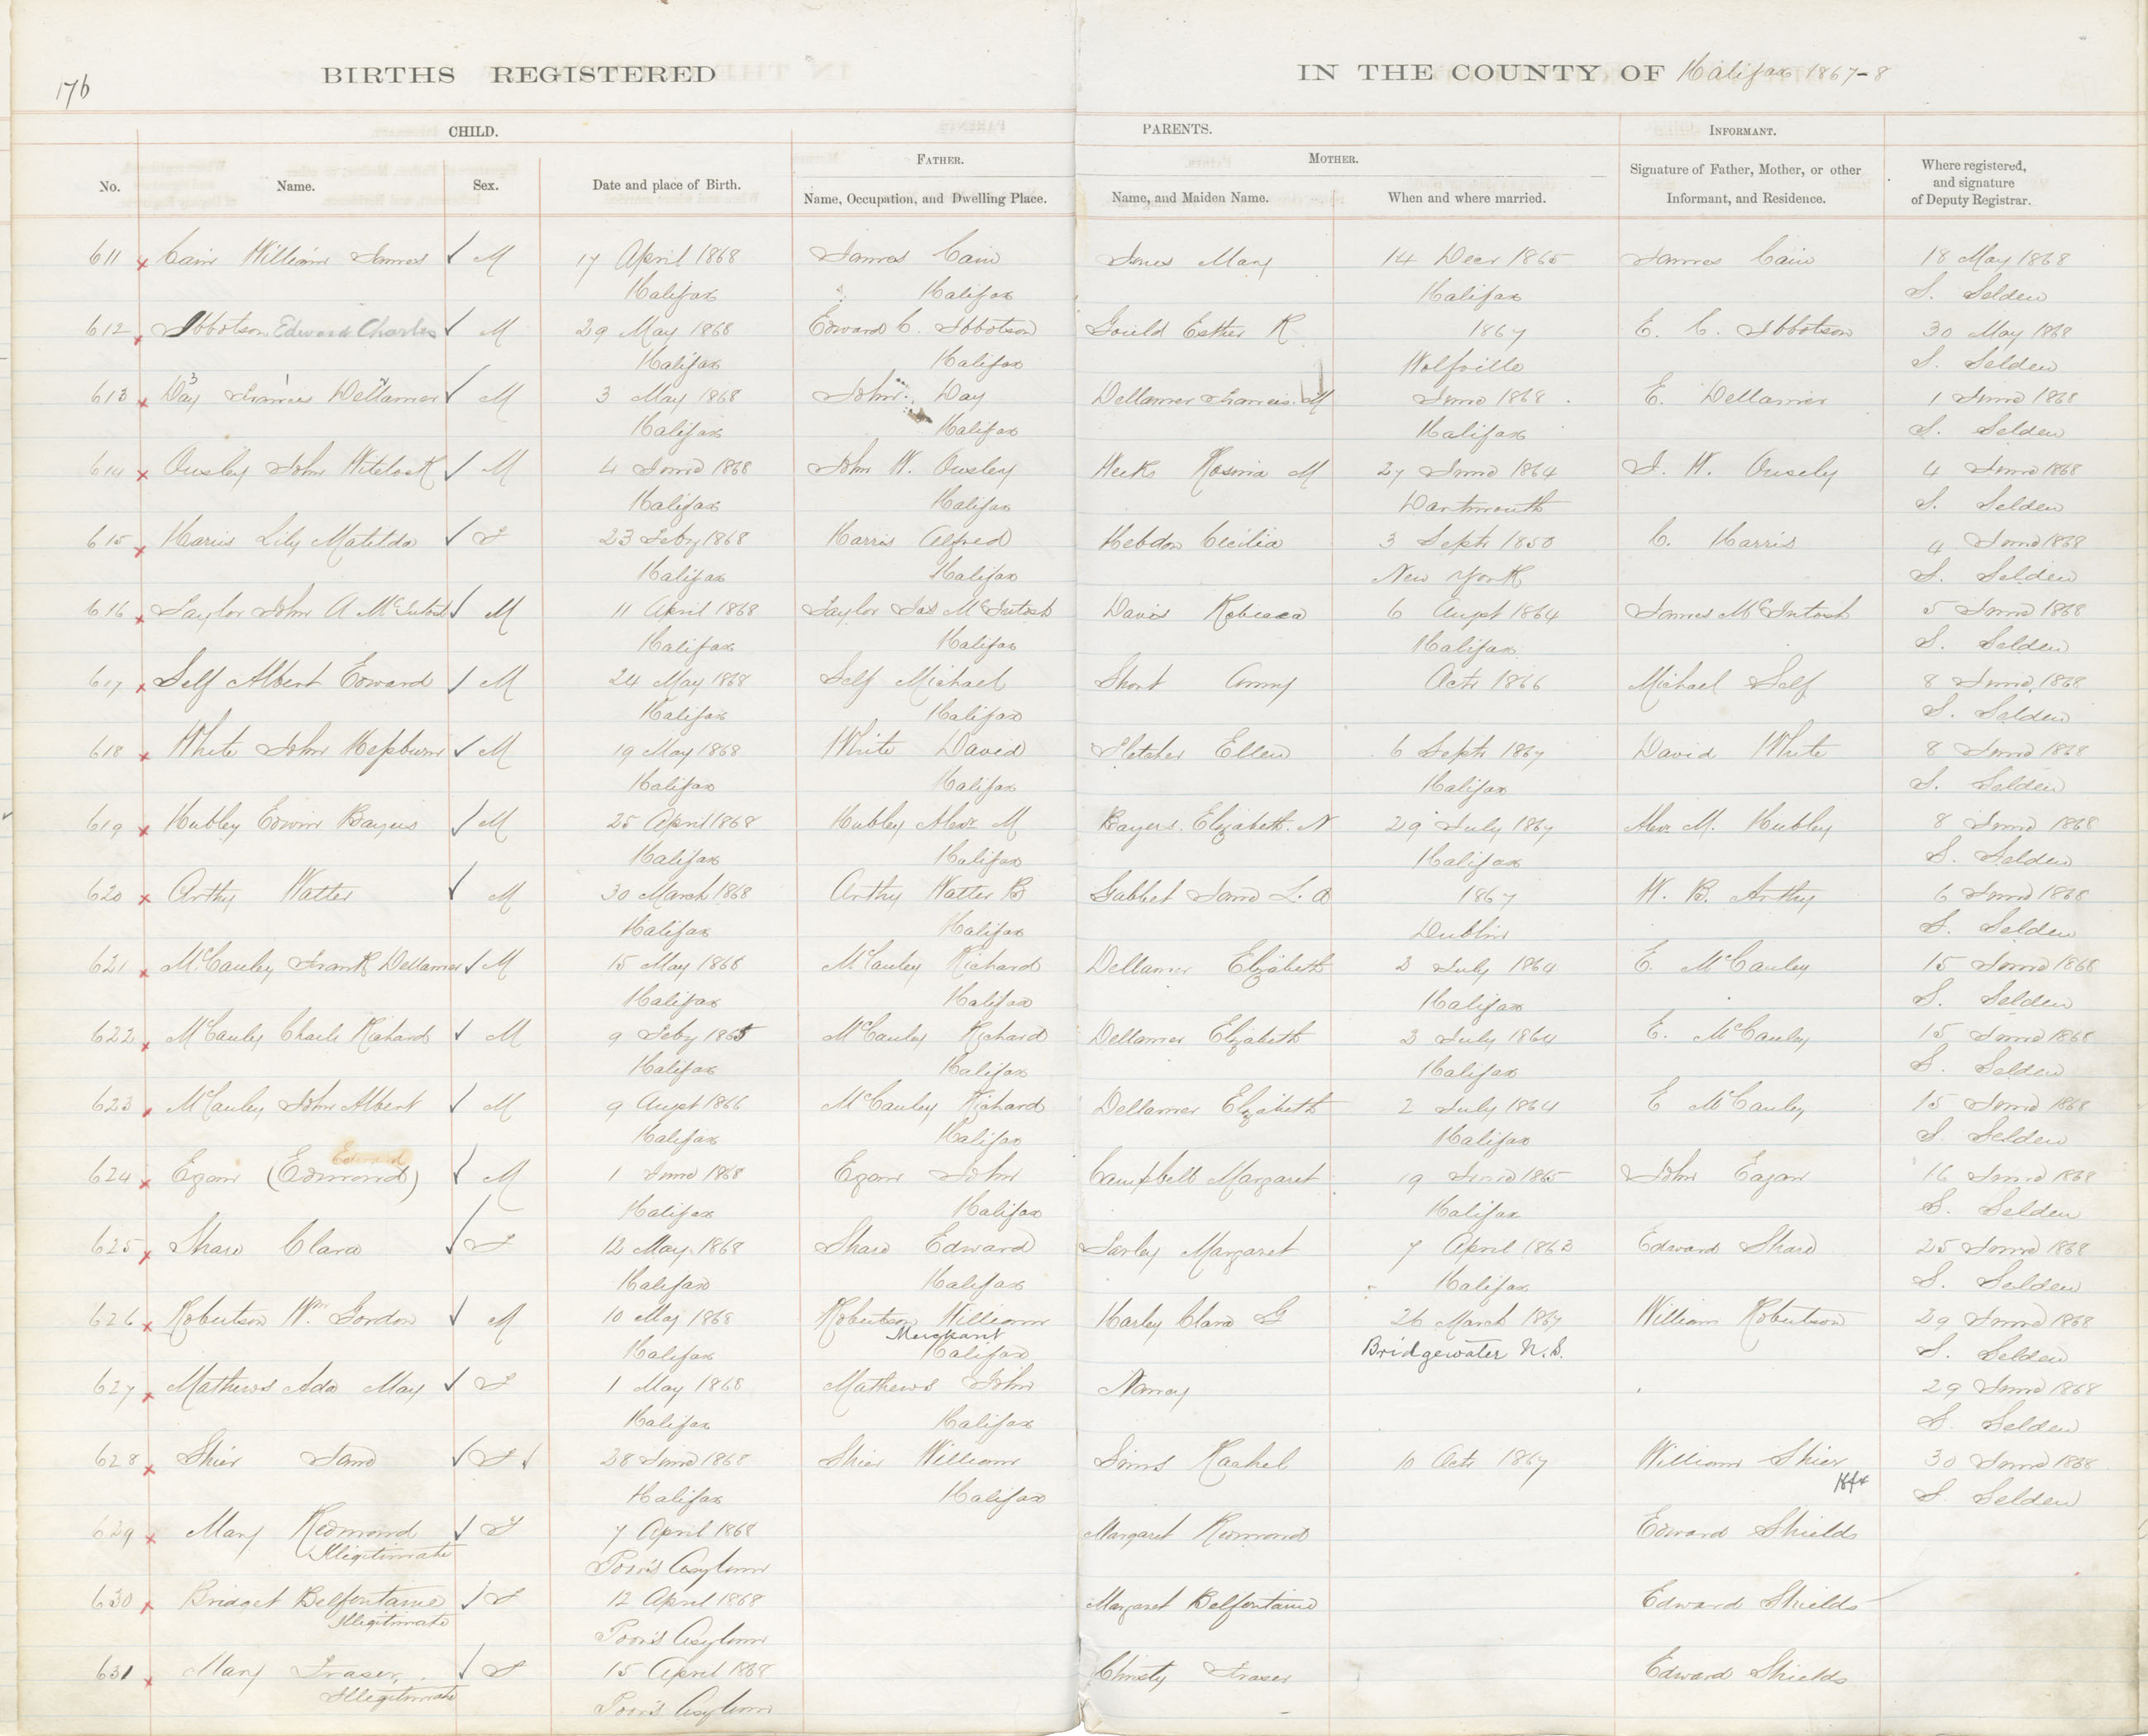 176
BIRTHS REGISTERED IN THE COUNTY OF Halifax 1867-8
CHILD. PARENTS. INFORMANT.
FATHER. MOTHER.
No. Name. Sex. Date and place of Birth. Name, Occupation, and Dwelling Place. Name, and Maiden Name. When and where married. Signature of Father, Mother, or other Informant, and Residence. Where registered, and signature of Deputy Registrar.
611 x Cain William James ✓ M 17 April 1868 James Cain Jones Mary 14 Decr 1865 James Cain 18 May 1868
Halifax Halifax Halifax S. Selden
612 x Ibbotson Edward Charles ✓ M 29 May 1868 Edward C. Ibbotson Gould Esther R 1867 E. C. Ibbotson 30 May 1868
Halifax Halifax Wolfville S. Selden
613 x Day Francis Dellamer ✓ M 3 May 1868 John Day Dellamer Francis M June 1868 E. Dellamer 1 June 1868
Halifax Halifax Halifax S. Selden
614 x Ousley John Witelock ✓ M 4 June 1868 John W. Ousley Weeks Rosina M 27 June 1864 J. W. Ousely 4 June 1868
Halifax Halifax Dartmouth S. Selden
615 x Harris Lily Matilda ✓ F 23 Feby 1868 Harris Alfred Hebdon Cecilia 3 Septr 1850 C. Harris 4 June 1868
Halifax Halifax New York S. Selden
616 x Taylor John A McIntosh ✓ M 11 April 1868 Taylor Jas McIntosh Davis Rebecca 6 Augst 1864 James McIntosh 5 June 1868
Halifax Halifax Halifax S. Selden
617 x Self Albert Edward ✓ M 24 May 1868 Self Michael Short Anny Octr 1866 Michael Self 8 June 1868
Halifax Halifax S. Selden
618 x White John Hepburn ✓ M 19 May 1868 White David Fletcher Ellen 6 Septr 1867 David White 8 June 1868
Halifax Halifax Halifax S. Selden
619 x Hubley Edwin Bayers ✓ M 25 April 1868 Hubley Alexr M Bayers Elizabeth N 29 July 1867 Alexr M. Hubley 8 June 1868
Halifax Halifax Halifax S. Selden
620 x Arthy Walter ✓ M 30 March 1868 Arthy Walter B Gabbet Jane L. A 1867 W. B. Arthy 6 June 1868
Halifax Halifax Dublin S. Selden
621 x McCauley Frank Dellamer ✓ M 15 May 1868 McCauley Richard Dellamer Elizabeth 2 July 1864 E. McCauley 15 June 1868
Halifax Halifax Halifax S. Selden
622 x McCauley Charls Richard ✓ M 9 Feby 1865 McCauley Richard Dellamer Elizabeth 2 July 1864 E. McCauley 15 June 1868
Halifax Halifax Halifax S. Selden
623 x McCauley John Albert ✓ M 9 Augst 1866 McCauley Richard Dellamer Elizabeth 2 July 1864 E McCauley 15 June 1868
Halifax Halifax Halifax S. Selden
Edward
624 x Egan (Edmond) ✓ M 1 June 1868 Egan John Campbell Margaret 19 June 1865 John Eagan 16 June 1868
Halifax Halifax Halifax S. Selden
625 x Shaw Clara ✓ F 12 May 1868 Shaw Edward Margaret 7 April 1863 Edward Shaw 25 June 1868
Halifax Halifax Halifax S. Selden
626 x Robertson Wm. Gordon ✓ M 10 May 1868 Robertson William Harley Clara G 26 March 1867 William Robertson 29 June 1868
Merchant
Halifax Halifax Bridgewater N.S. S. Selden
627 x Mathews Ada May ✓ F 1 May 1868 Mathews John Nancy 29 June 1868
Halifax Halifax S. Selden
628 x Shier Jane ✓ F ✓ 28 June 1868 Shier William Sims Rachel 10 Octr 1867 William Shier 30 June 1868
Halifax Halifax Hfx S. Selden
629 x Mary Redmond ✓ F 7 April 1868 Margaret Redmond Edward Shields
Illigitimate Poor's Asylum
630 x Bridget Belfontaine ✓ F 12 April 1868 Margaret Belfontaine Edward Shields
Illigitimate Poor's Asylum
631 x Mary Fraser ✓ F 15 April 1868 Christy Fraser Edward Shields
Illegitimate Poor's Asylum